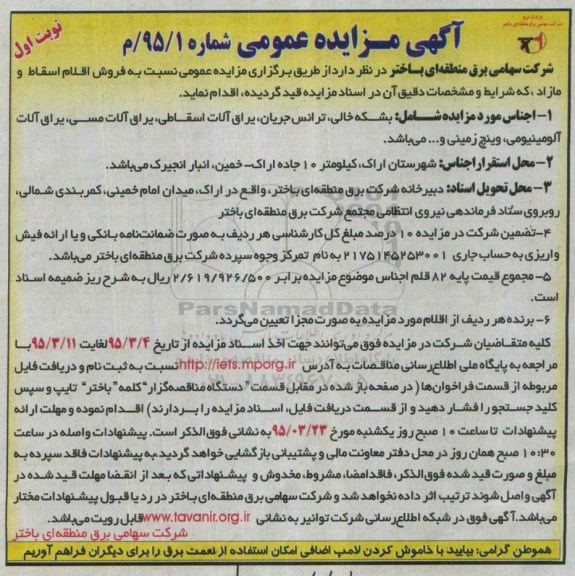 وزارت نیرو
شرکت سهامی برق منطقه‌ای باختر
نوبت اول
آگهی مزایده عمومی شماره ۹۵/۱/م
شرکت سهامی برق منطقه‌ای باختر در نظر دارد از طریق برگزاری مزایده عمومی نسبت به فروش اقلام اسقاط و
مازاد ، که شرایط و مشخصات دقیق آن در اسناد مزایده قید گردیده، اقدام نماید.
۱- اجناس مورد مزایده شامل: بشکه خالی، ترانس جریان، یراق آلات اسقاطی، یراق آلات مسی، یراق آلات
آلومینیومی، وینچ زمینی و... می‌باشد.
۲- محل استقرار اجناس: شهرستان اراک، کیلومتر ۱۰ جاده اراک- خمین، انبار انجیرک می‌باشد.
۳- محل تحویل اسناد: دبیرخانه شرکت برق منطقه‌ای باختر، واقع در اراک، میدان امام خمینی، کمربندی شمالی،
روبروی ستاد فرماندهی نیروی انتظامی مجتمع شرکت برق منطقه‌ای باختر
۴-تضمین شرکت در مزایده ۱۰ درصد مبلغ کل کارشناسی هر ردیف به صورت ضمانت‌نامه بانکی و یا ارائه فیش
واریزی به حساب جاری ۲۱۷۵۱۴۵۲۵۳۰۰۱ به نام تمرکز وجوه سپرده شرکت برق منطقه‌ای باختر می‌باشد.
۵- مجموع قیمت پایه ۸۲ قلم اجناس موضوع مزایده برابر ۲/۶۱۹/۹۲۶/۵۰۰ ریال به شرح ریز ضمیمه اسناد
است.
۶- برنده هر ردیف از اقلام مورد مزایده به صورت مجزا تعیین می‌گردد.
کلیه متقاضیان شرکت در مزایده فوق می‌توانند جهت اخذ اسناد مزایده از تاریخ ۹۵/۳/۴ لغایت ۹۵/۳/۱۱ با
مراجعه به پایگاه ملی اطلاع‌رسانی مناقصات به آدرس http://iets.mporg.ir نسبت به ثبت نام و دریافت فایل
مربوطه از قسمت فراخوان‌ها ( در صفحه باز شده در مقابل قسمت "دستگاه مناقصه‌گزار" کلمه "باختر" تایپ و سپس
کلید جستجو را فشار دهید و از قسمت دریافت فایل، اسناد مزایده را بردارند) اقدام نموده و مهلت ارائه
پیشنهادات تا ساعت ۱۰ صبح روز یکشنبه مورخ ۹۵/۰۳/۲۳ به نشانی فوق‌الذکر است. پیشنهادات واصله در ساعت
۱۰:۳۰ صبح همان روز در محل دفتر معاونت مالی و پشتیبانی بازگشایی خواهد گردید به پیشنهادات فاقد سپرده به
مبلغ و صورت قید شده فوق‌الذکر، فاقد امضا، مشروط، مخدوش و پیشنهاداتی که بعد از انقضا مهلت قید شده در
آگهی واصل شوند ترتیب اثر داده نخواهد شد و شرکت سهامی برق منطقه‌ای باختر در رد یا قبول پیشنهادات مختار
می‌باشد. آگهی فوق در شبکه اطلاع‌رسانی شرکت توانیر به نشانی www.tavanir.org.ir قابل رویت می‌باشد.
شرکت سهامی برق منطقه‌ای باختر
هموطن گرامی: بیایید با خاموش کردن لامپ اضافی امکان استفاده از نعمت برق را برای دیگران فراهم آوریم
ParsNamadData